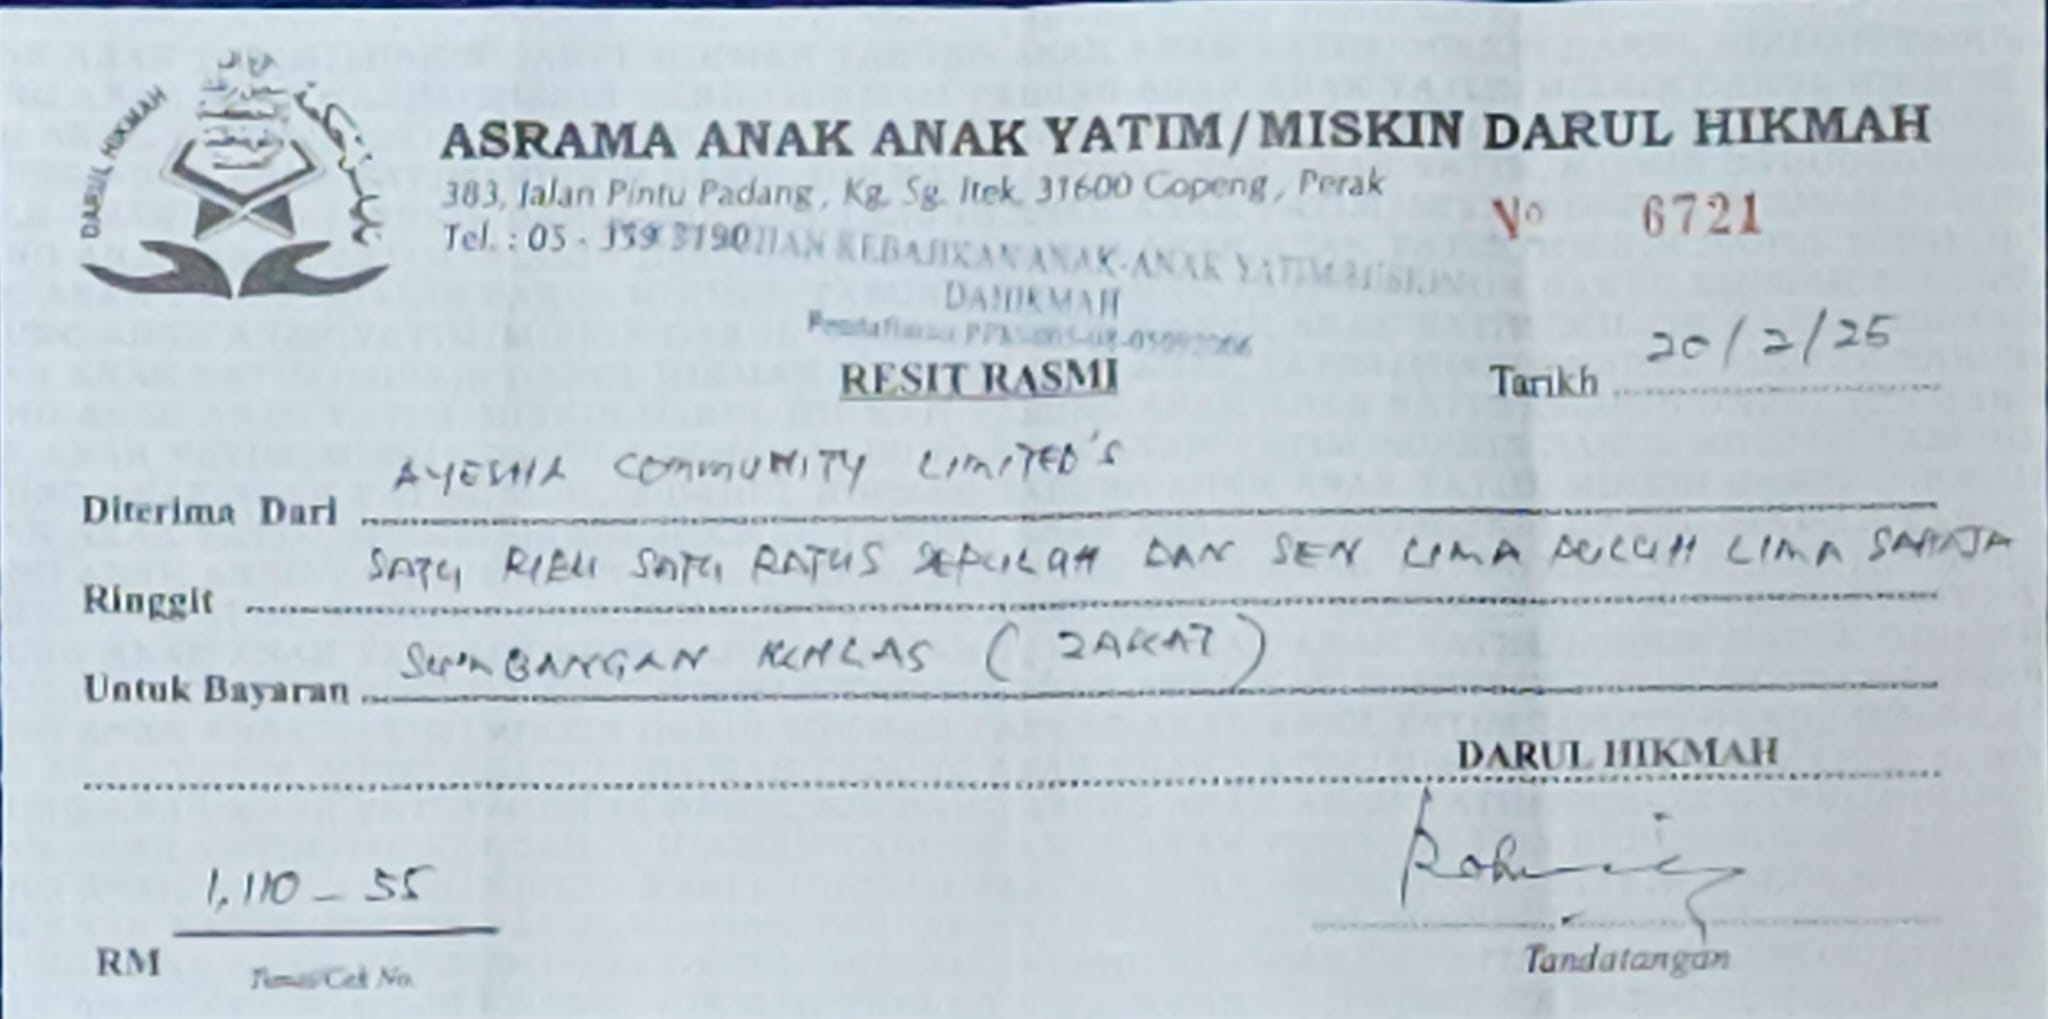 DARUL HIKMAH
ASRAMA ANAK ANAK YATIM/MISKIN DARUL HIKMAH
383, Jalan Pintu Padang, Kg. Sg. Itek, 31600 Gopeng, Perak
Tel. : 05 - 359 3190
No 6721
KEBAJIKAN ANAK-ANAK YATIM MISKIN
DAHIKMAH
RESIT RASMI
Tarikh 20/2/25
Diterima Dari AYESHA COMMUNITY LIMITED'S
Ringgit SATU RIBU SATU RATUS SEPULUH DAN SEN LIMA PULUH LIMA SAHAJA
Untuk Bayaran SUMBANGAN IKHLAS (ZAKAT)
DARUL HIKMAH
RM 1,110 - 55
Tunai/Cek No.
Tandatangan